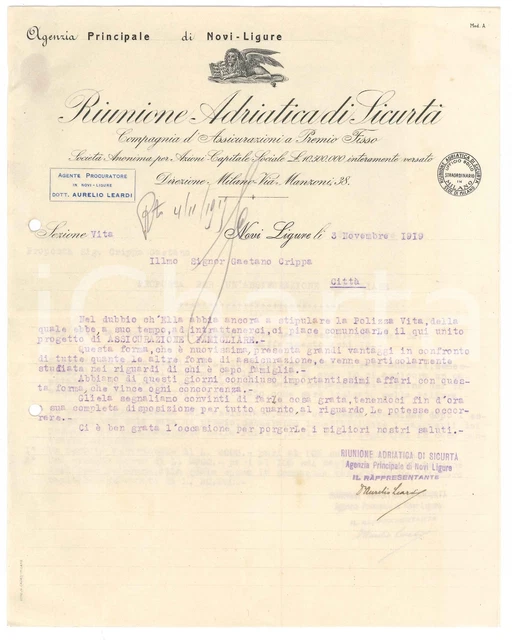 Mod. A
Agenzia Principale di Novi-Ligure
Riunione Adriatica di Sicurtà
Compagnia d'Assicurazioni a Premio Fisso
Società Anonima per Azioni Capitale Sociale L. 10.500.000 interamente versato
Direzione Milano Via Manzoni, 38.
AGENTE PROCURATORE
IN NOVI-LIGURE
DOTT. AURELIO LEARDI
RIUNIONE ADRIATICA DI SICURTÀ
STRAORDINARIO
MILANO
4/11/1919
Sezione Vita
Novi Ligure li 3 Novembre 1919
Illmo Signor Gaetano Grippa
Città
Nel dubbio ch'Ella abbia ancora a stipulare la Polizza Vita, della
quale ebbe, a suo tempo, ad intrattenerci, ci piace comunicarLe il qui unito
progetto di ASSICURAZIONE FAMILIARE.-
Questa forma, che è nuovissima, presenta grandi vantaggi in confronto
di tutte quante le altre forme di assicurazione, e venne particolarmente
studiata nei riguardi di chi è capo famiglia.-
Abbiamo di questi giorni conchiuso importantissimi affari con ques-
ta forma, che vince ogni concorrenza.-
Gliela segnaliamo convinti di farLe cosa grata, tenendoci fin d'ora
a sua completa disposizione per tutto quanto, al riguardo, Le potesse occor-
rare.-
Ci è ben grata l'occasione per porgerLe i migliori nostri saluti.-
RIUNIONE ADRIATICA DI SICURTÀ
Agenzia Principale di Novi Ligure
IL RAPPRESENTANTE
D' Aurelio Leardi